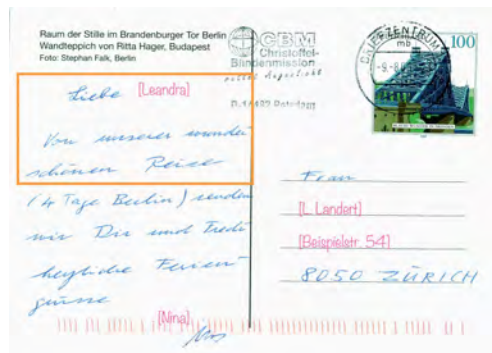 Raum der Stille im Brandenburger Tor Berlin
Wandteppich von Ritta Hager, Budapest
Foto: Stephan Falk, Berlin
CBM
Christoffel-
Blindenmission
rettet Augenlicht
BRIEFZENTRUM
mb
-9.-8.
100
Liebe [Leandra]
Von unserer wunder
schönen Reise
(4 Tage Berlin) senden
wir Dir und Fredi
herzliche Ferien-
grüsse
[Nina]
Frau
[L. Landert]
[Beispielstr. 54]
8050 ZÜRICH